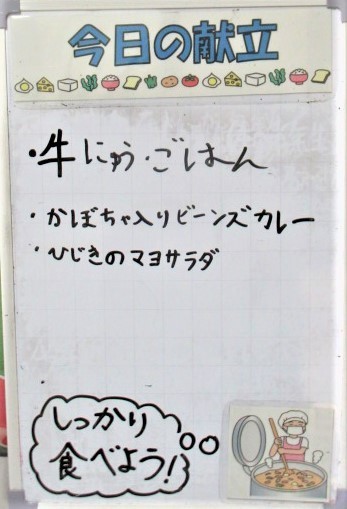 今日の献立
・牛にゅう・ごはん
・かぼちゃ入りビーンズカレー
・ひじきのマヨサラダ
しっかり
食べよう!